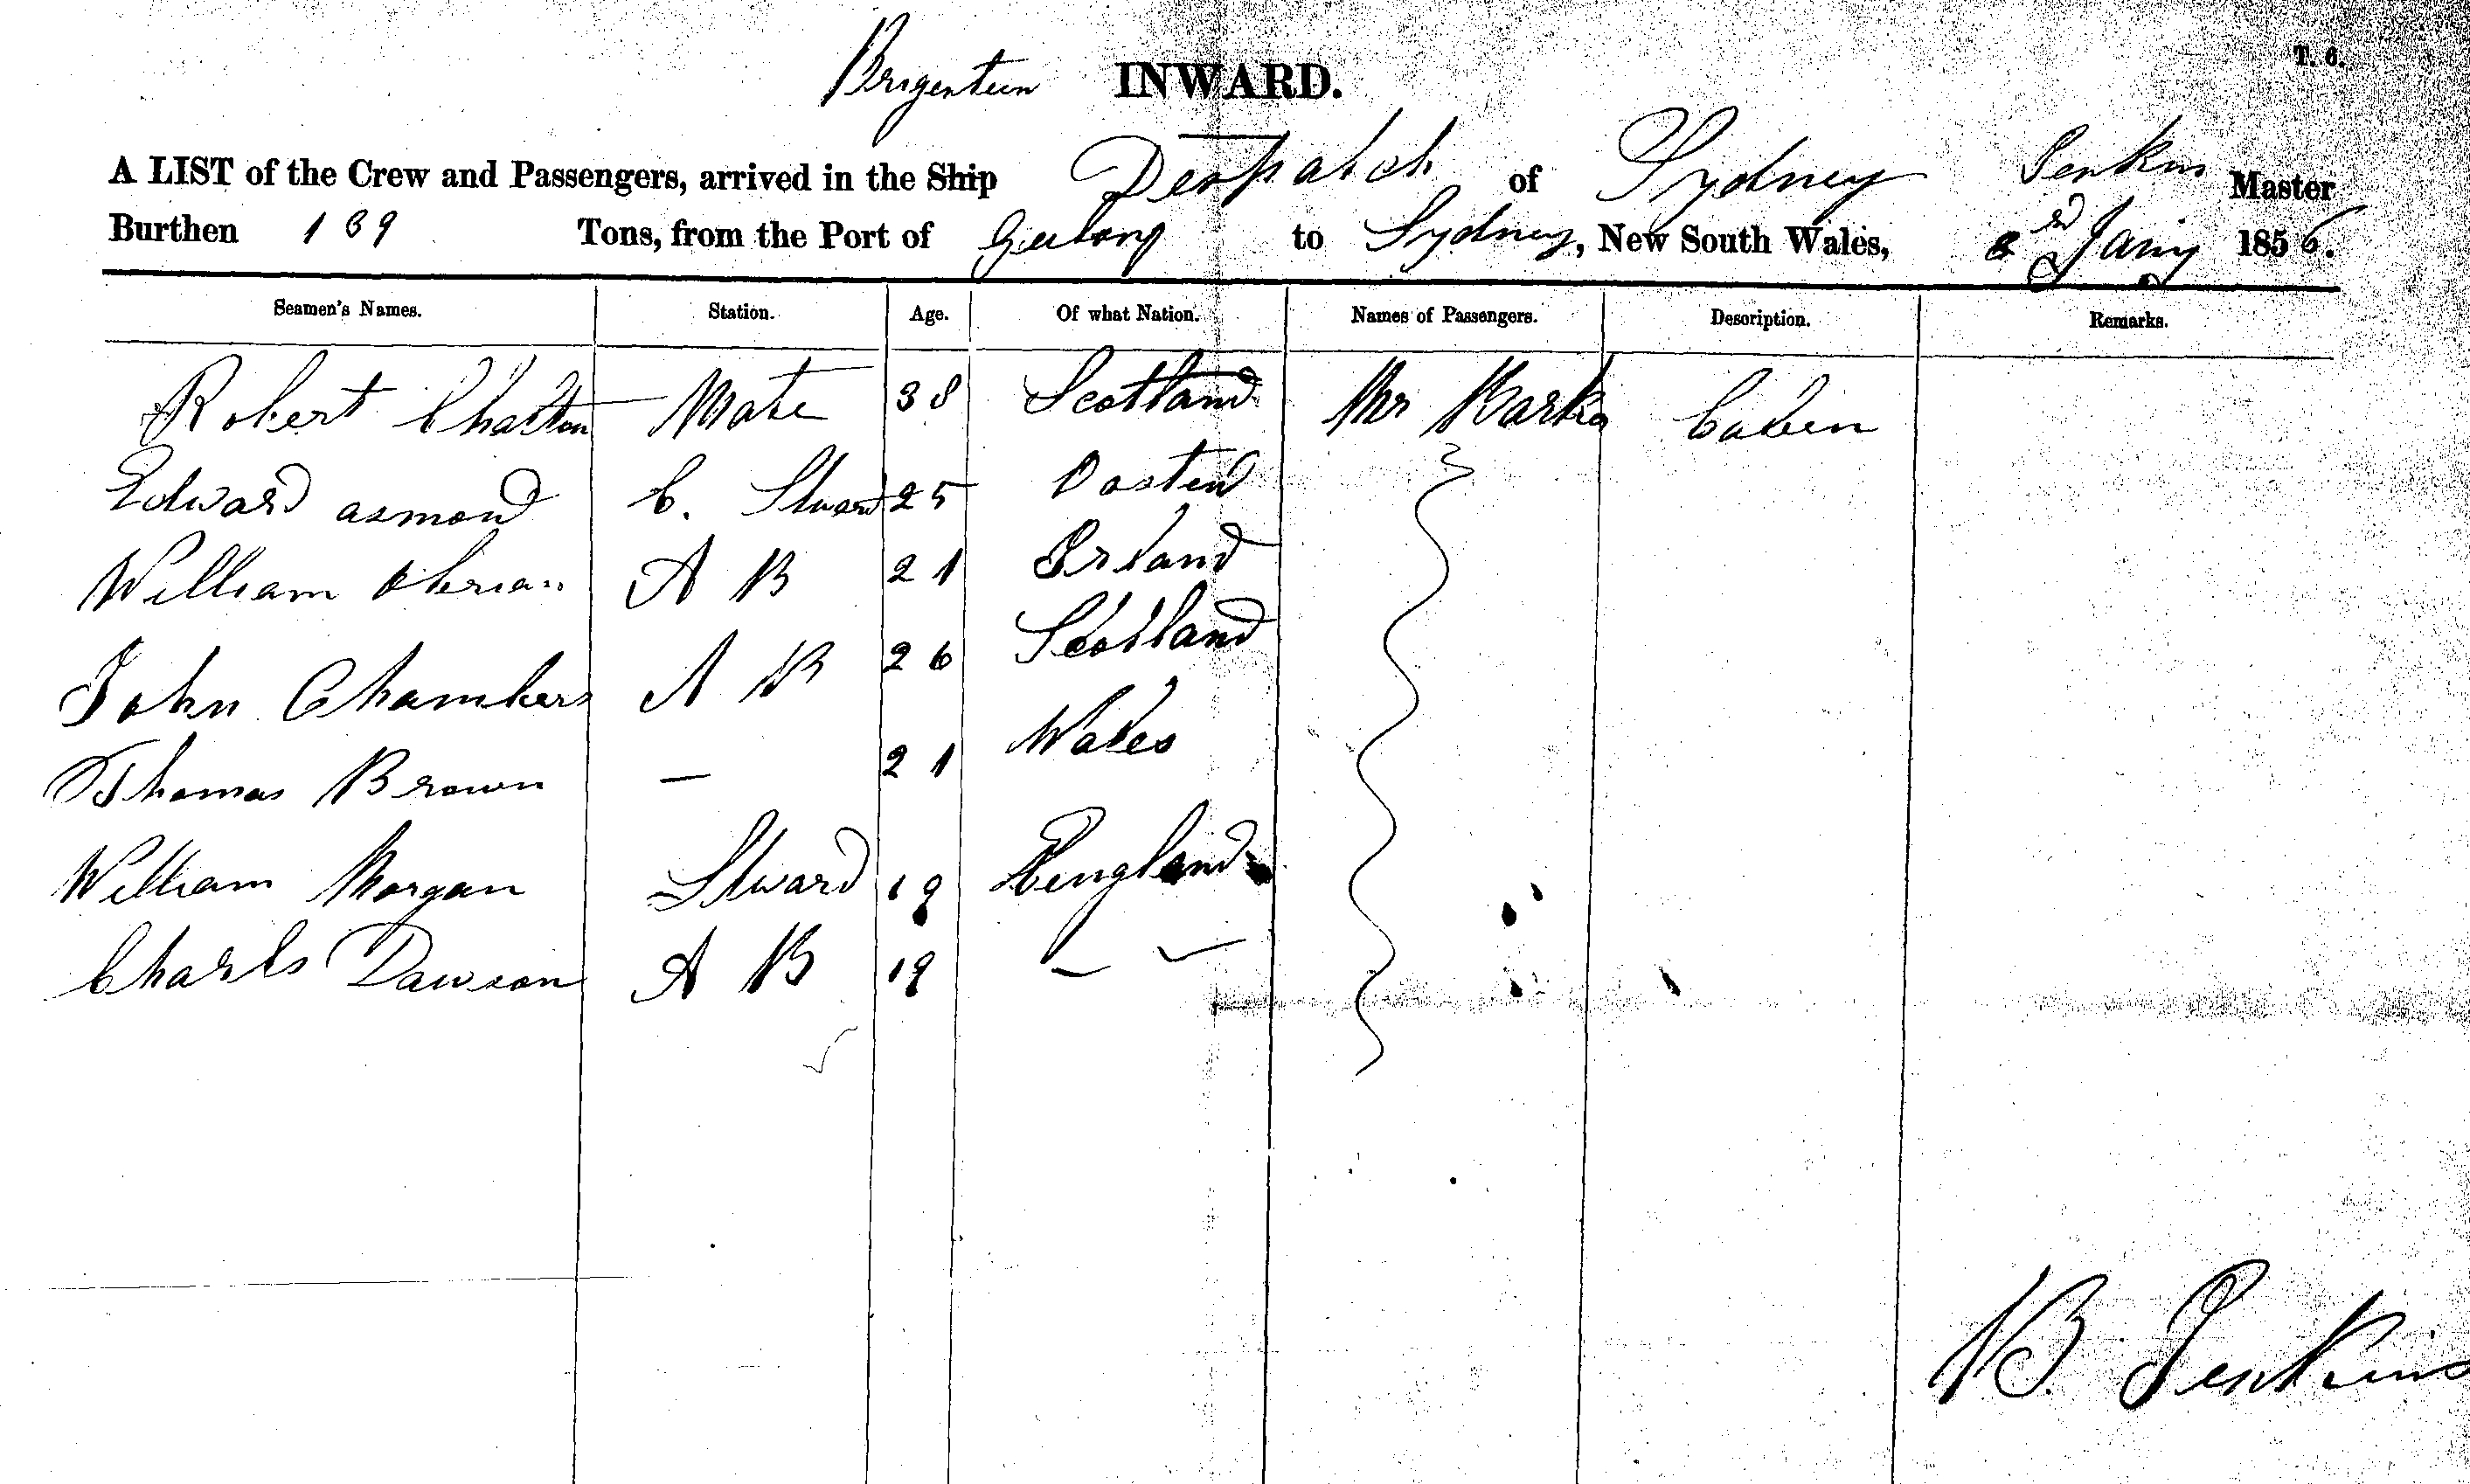 Brigenteen INWARD. T. 6.
A LIST of the Crew and Passengers, arrived in the Ship Despatch of Sydney Jenkins Master
Burthen 139 Tons, from the Port of Geelong to Sydney, New South Wales, Jany 1856.
Seamen's Names. Station. Age. Of what Nation. Names of Passengers. Description. Remarks.
Robert Mate 38 Scotland Mr Cabin
Edward asmond C. Stward 25
William Obrian A B 21 Irland
John Chambers A B 26 Scotland
Thomas Brown — 21 Wales
William Morgan Stward 19 Hengland
Charls Dawson A B 19 — —
B. Jenkins